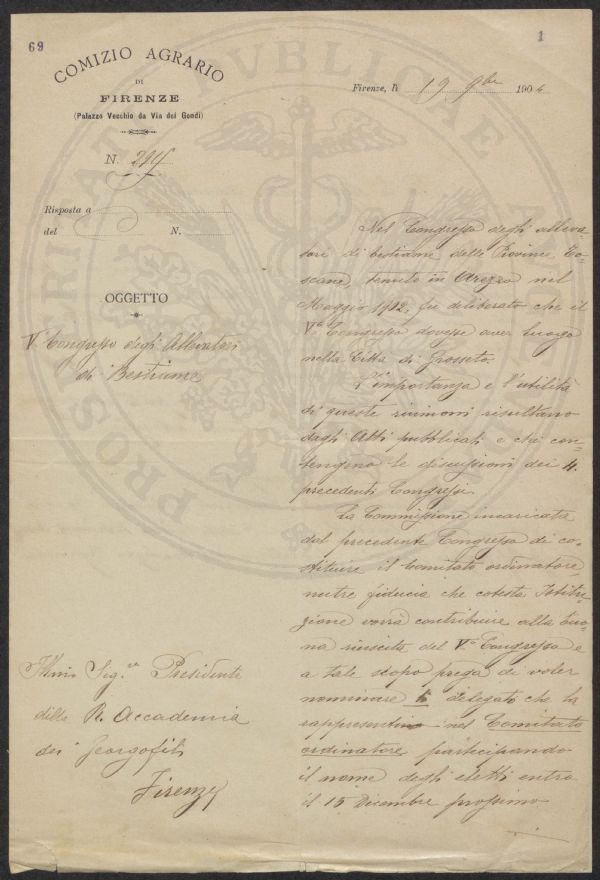 69
1
COMIZIO AGRARIO
DI
FIRENZE
(Palazzo Vecchio da Via dei Gondi)
Firenze, li 19 9bre 1904
N. 294
Risposta a
del N.
OGGETTO
V° Congresso degli Allevatori
di Bestiame
PROSPERITATI PUBLICAE
Nel Congresso degli alleva-
tori di bestiame delle Provincie To-
scane, tenuto in Arezzo nel
Maggio 1882, fu deliberato che il
V° Congresso dovesse aver luogo
nella Città di Grosseto.
L'importanza e l'utilità
di queste riunioni risultano
dagli Atti pubblicati e che con-
tengono le discussioni dei 4
precedenti Congressi.
La Commissione incaricata
dal precedente Congresso di co-
stituire il Comitato ordinatore
nutre fiducia che cotesta Istitu-
zione vorrà contribuire alla buo-
na riuscita del V° Congresso e
a tale scopo prega di voler
nominare delegato che la
rappresentino nel Comitato
ordinatore partecipando
il nome degli eletti entro
il 15 Dicembre prossimo
Illmo Sig.re Presidente
della R. Accademia
dei Georgofili
Firenze